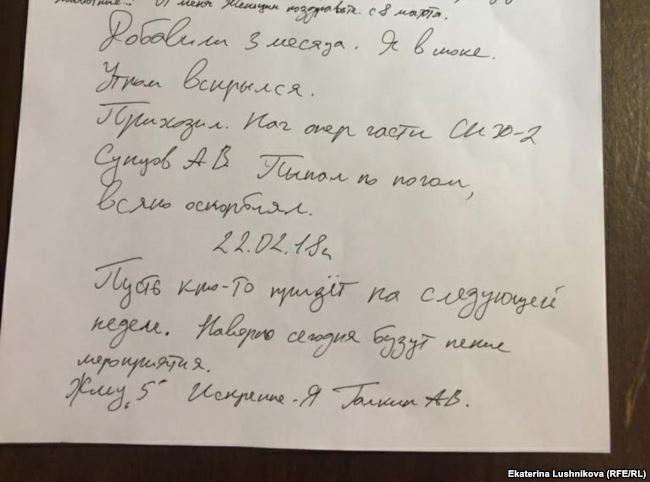 От меня женщин поздравьте. с 8 марта.
Добавили 3 месяца. Я в шоке.
Утром вскрылся.
Приходил. Нач опер части СИЗО-2
Сунцов А В. Пытал по ногам,
всяко оскорблял.
22.02.18г
Пусть кто-то придёт на следующей
неделе. Наверно сегодня будут
мероприятия.
Жму „5" Искренне-Я Галкин А В.
Ekaterina Lushnikova (RFE/RL)